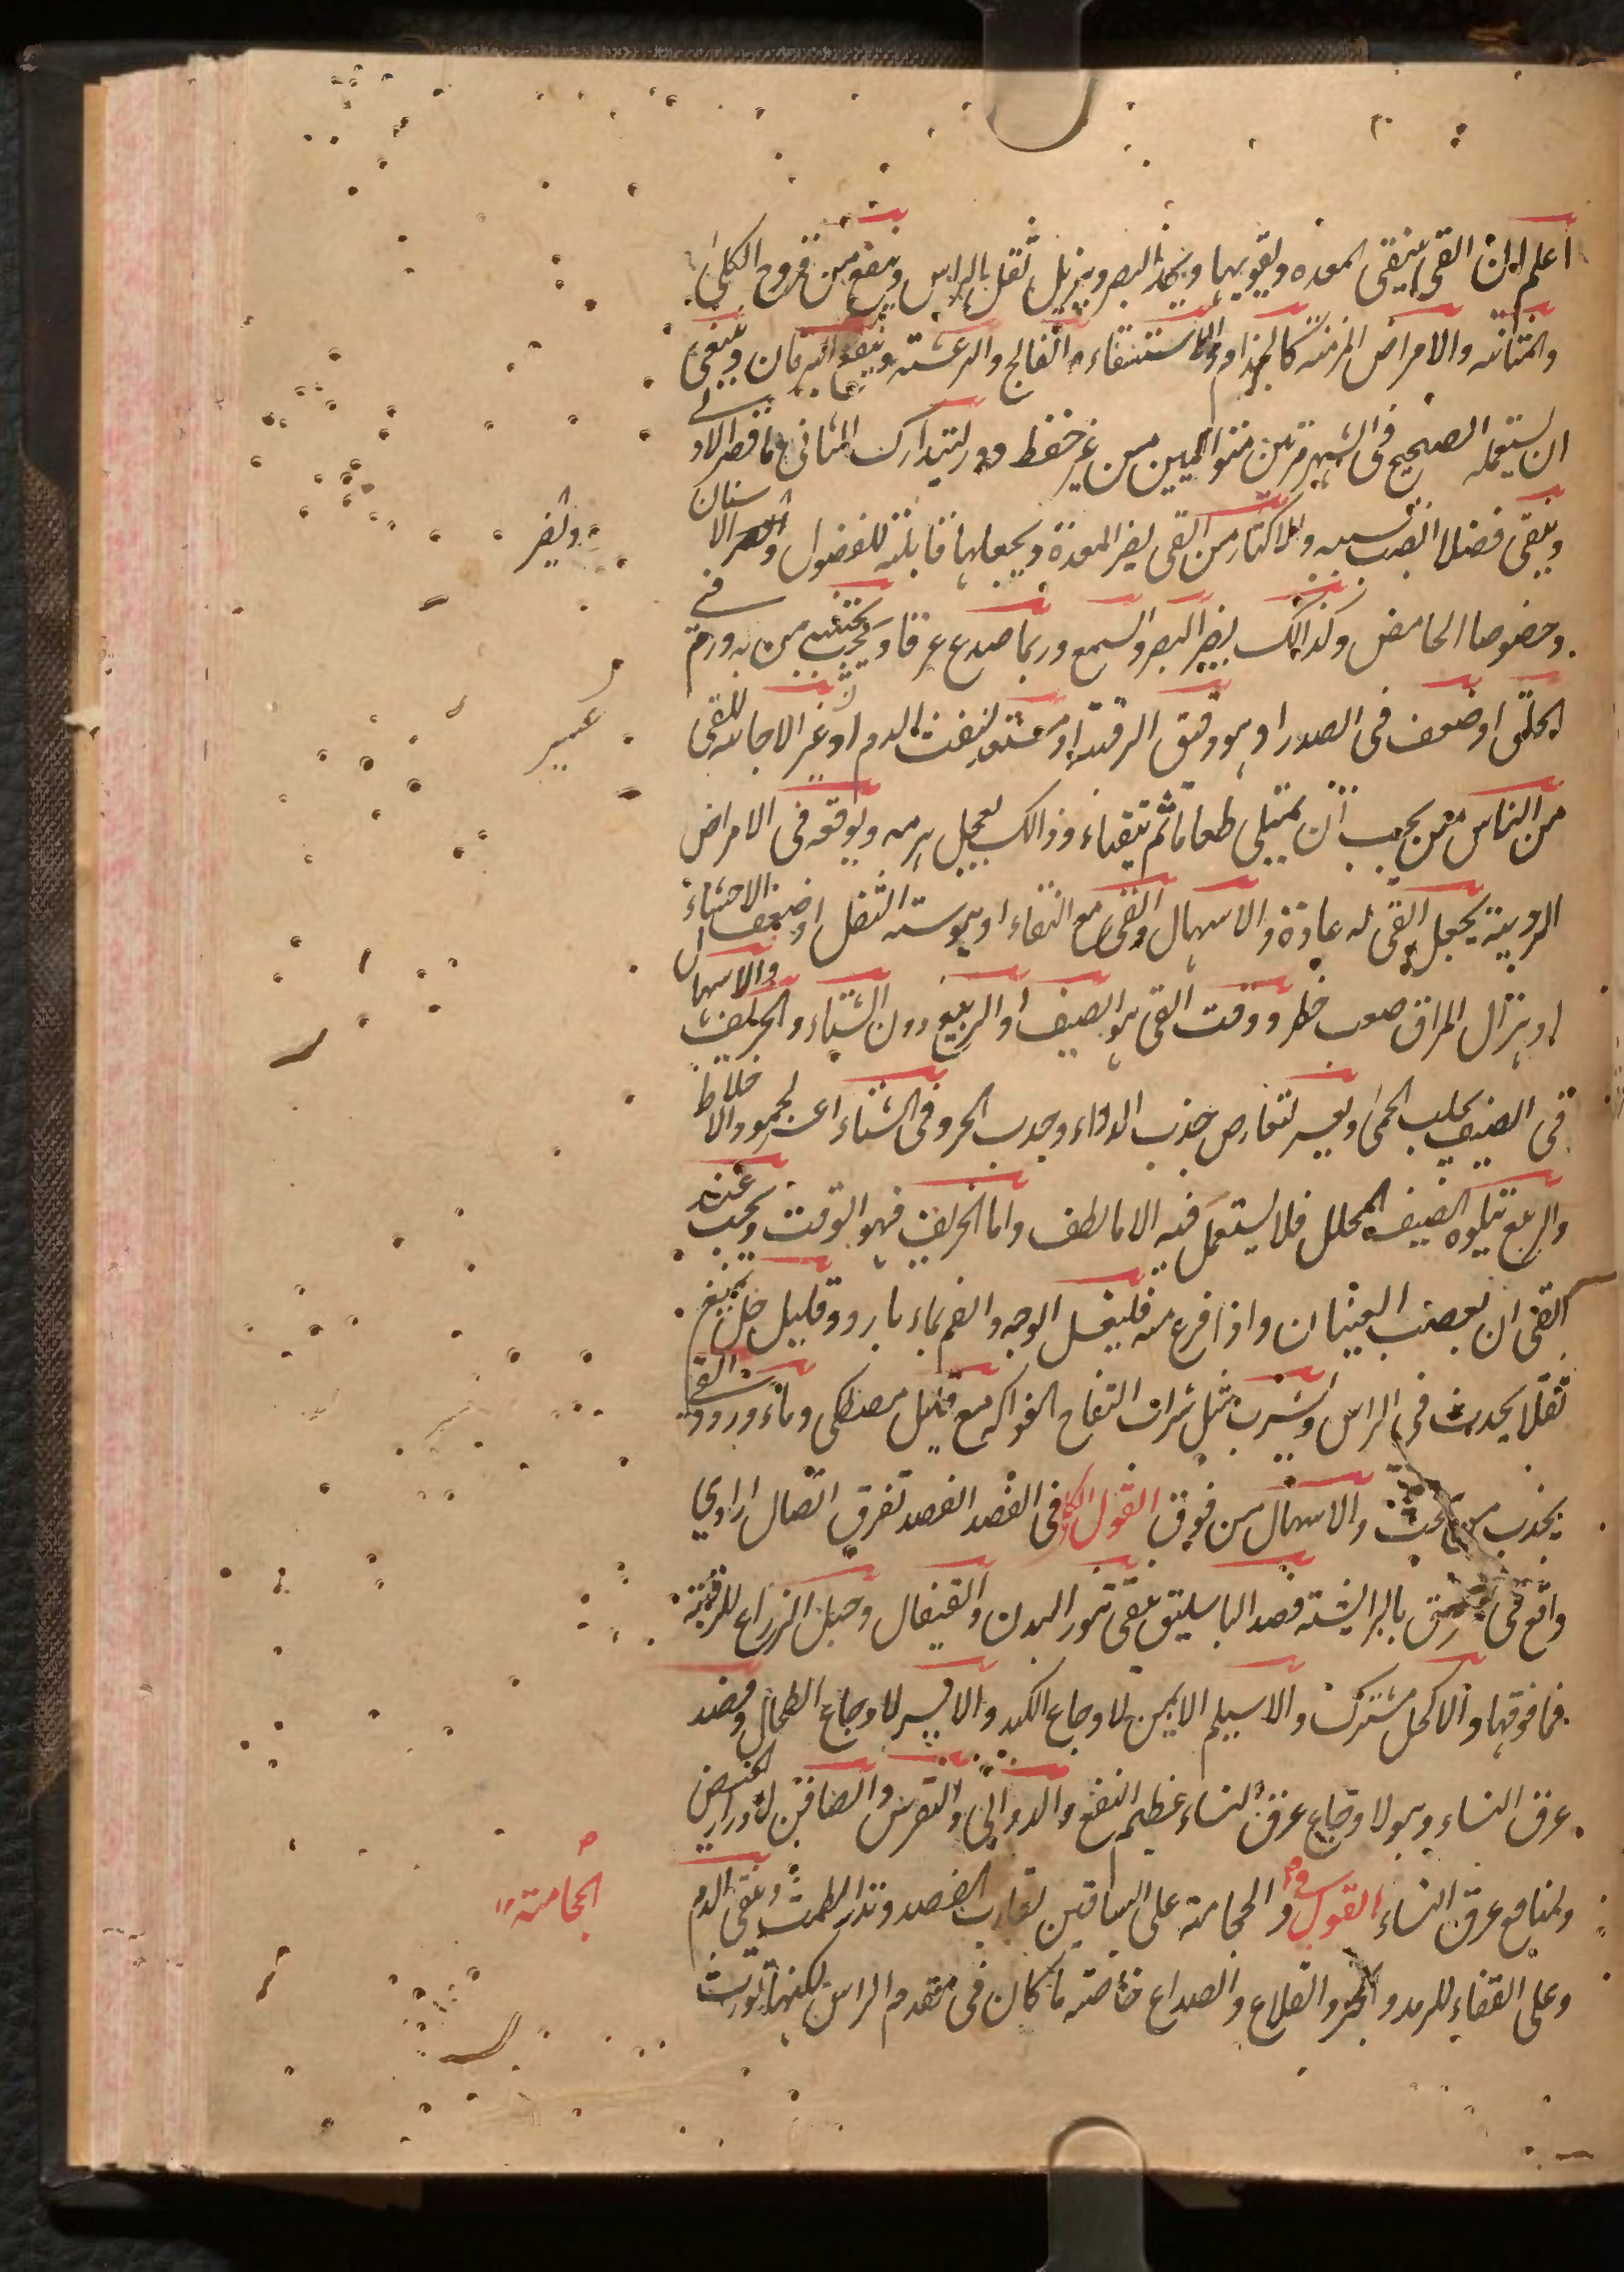 اعلم ان القى ينقى المعده ويقويها ويحد البصر ويزيل ثقل الراس وينفع من قروح الكلى
والمثانه والامراض المزمنه كالجذام والاستسقاء والفالج والرعشه وينفع اليرقان وينبغى
ان يستعمله الصحيح فى الشهر مرتين متواليين من غير حفظ دور ليتدارك الثانى ما قصر الاول
وينقى فضلا انصب بسببه والاكثار من القى يضر المعدة ويجعلها قابلته للفضول والاسنان
ويضر
وخصوصا الحامض وكذالك يضر البصر والسمع وربما صدع عرقا ويجب يجتنبه من به ورم فى
الحلق او ضعف فى الصدر او هو دقيق الرقبة او مستعد لنفث الدم او عسر الاجابه للقى
عسير
من الناس من يحب ان يمتلى طعاما ثم يتقياء وذالك يعجل هرمه ويوقعه فى الامراض
الردية يجعل القى له عادة والاسهال والقى مع النقاء او يبوسته الثفل او ضعف الاحشاء
او هزال المراق صعب خطر ووقت القى هو الصيف او الربيع دون الشتاء والخريف والاسهال
فى الصيف يجلب الحمى ويعسر لتعارض جذب الدواء وجذب الحر وفى الشتاء اعسر لجمود الاخلاط
والربيع يتلوه الصيف المحلل فلا يستعمل فيه الا ما لطف واما الخريف فهو الوقت ويجب عند
القى ان يعصب العينان واذا فرغ منه فليغسل الوجه والفم بماء بارد وقليل خل يمنع
ثقلا يحدث فى الراس ويشرب مثل شراب التفاح الفواكه مع قليل مصطكى وماء ورد والقى
يجذب من تحت والاسهال من فوق القول فى الفصد الفصد تفرق اتصال ارادى
واقع فى بالبرايشته فصد الباسليق ينقى تنور البدن والقيفال وحبل الزراع للرقبته
فما فوقها والاكحل مشترك والاسيلم الايمن لاوجاع الكبد والايسر لاوجاع الطحال وفصد
عرق النساء وهو لاوجاع عرق النساء عظيم النفع والدوالى والنقرس والصافن لادرار الحيض
ولمنافع عرق النساء القول والحجامته على الساقين تقارب الفصد وتدر الطمث وينقى الدم
الحجامته
وعلى القفاء للرمد والبخر والقلاع والصداع خاصته ما كان فى مقدم الراس لكنها تورث